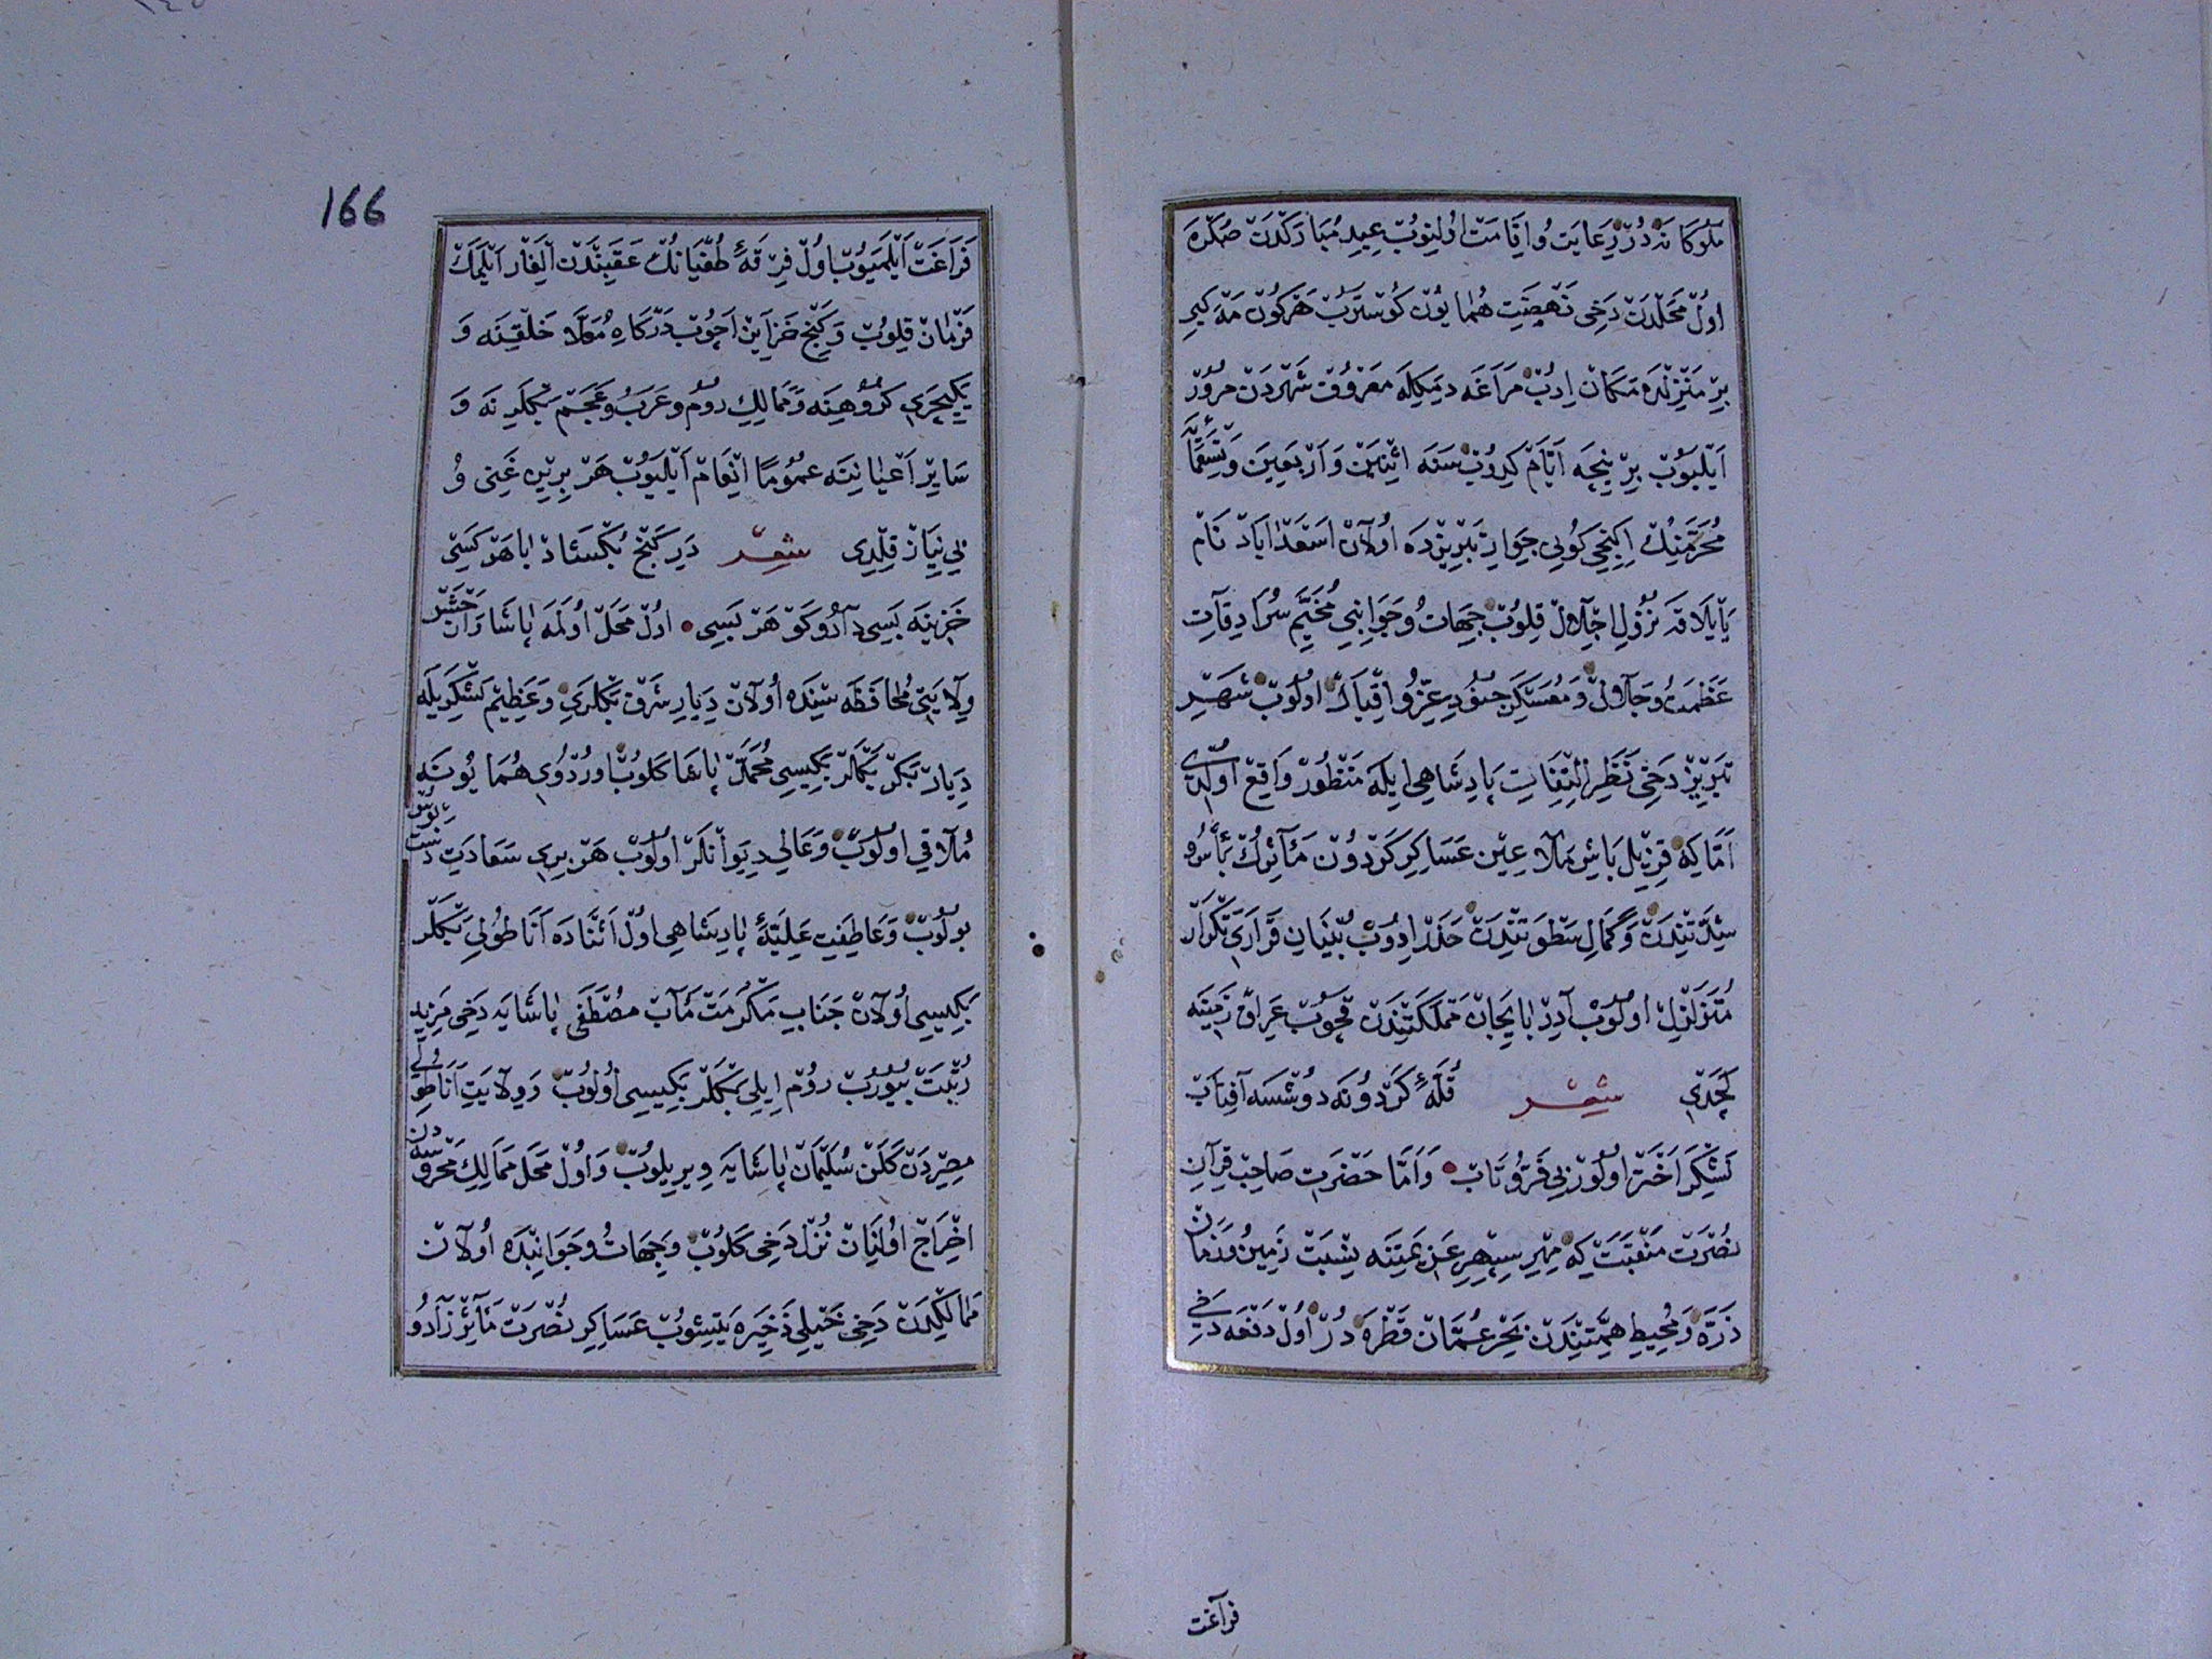 ملوکانه در رعایت و اقامت اولینوب عید مبارکدن صکره
اول محلدن دخی نهضت همایون کوستروب هرکون مه کبی
بر منزلده مکان ادب مراغه دیمکله معروف شهردن مرور
ایلیوب بر نیجه ایام کیروب سنه اثنین و اربعین و تسعمائه
محرمنک ایکنجی کونی جوار تبریزده اولان اسعداباد نام
یایلاقه نزول اجلال قلوب جهات و جوانبی مخیم سرادقات
عظمت و جلال و معسکر جنود عز و اقبال اولوب شهر
تبریز دخی نظر التفات پادشاهی ایله منظور واقع اولدی
اما که قزیل باش ملاعین عساکر کردون مآثرک بأس و
شدتندن و کمال سطوتندن حذر ادوب بنیان قراری تکرار
متزلزل اولوب آدربایجان مملکتندن قچوب عراق زمینه
کچدی شعر قله کردونه دوشسه آفتاب
لشکر اختر اولور بی فر و تاب و اما حضرت صاحب قران
نصرت منقبت که مهر سپهر عزیمتنه نسبت زمین و زمان
ذره و محیط همتندن بحر عمان قطره در اول دفعه دخی
فراغت
166
فراغت ایلمیوب اول فرقه طغیانک عقبندن الغار ایلمک
فرمان قلوب و کنج خزاین اچوب درکاه معلا خلقینه و
یکیچری کروهینه و ممالک روم و عرب و عجم بکلرینه و
سایر اعیانینه عموما انعام ایلیوب هر برین غنی و
بی نیاز قلدی شعر در کنج بکشاد با هر کسی
خزینه بسی داد و کوهر بسی اول محل اولمه پاشا وان
ولایتی محافظه سنده اولان دیار شرق بکلری و عظیم لشکریله
دیار بکر بکلر بکیسی محمد پاشا کلوب اوردوی همایونه
ملاقی اولوب و عالی دیوانلر اولوب هر بری سعادت دستبوس
بولوب و عاطفت علیه پادشاهی اول اثناده اناطولی بکلر
بکیسی اولان جناب مکرمت مآب مصطفی پاشایه دخی مزید
رتبت بیوروب روم ایلی بکلر بکیسی اولوب و ولایت اناطولی
مصردن کلن سلیمان پاشایه ویریلوب و اول محل ممالک محروسه دن
اخراج اولنان نزل دخی کلوب و جهات و جوانبده اولان
ممالکدن دخی خیلی ذخیره یتیشوب عساکر نصرت مآثر زاد و